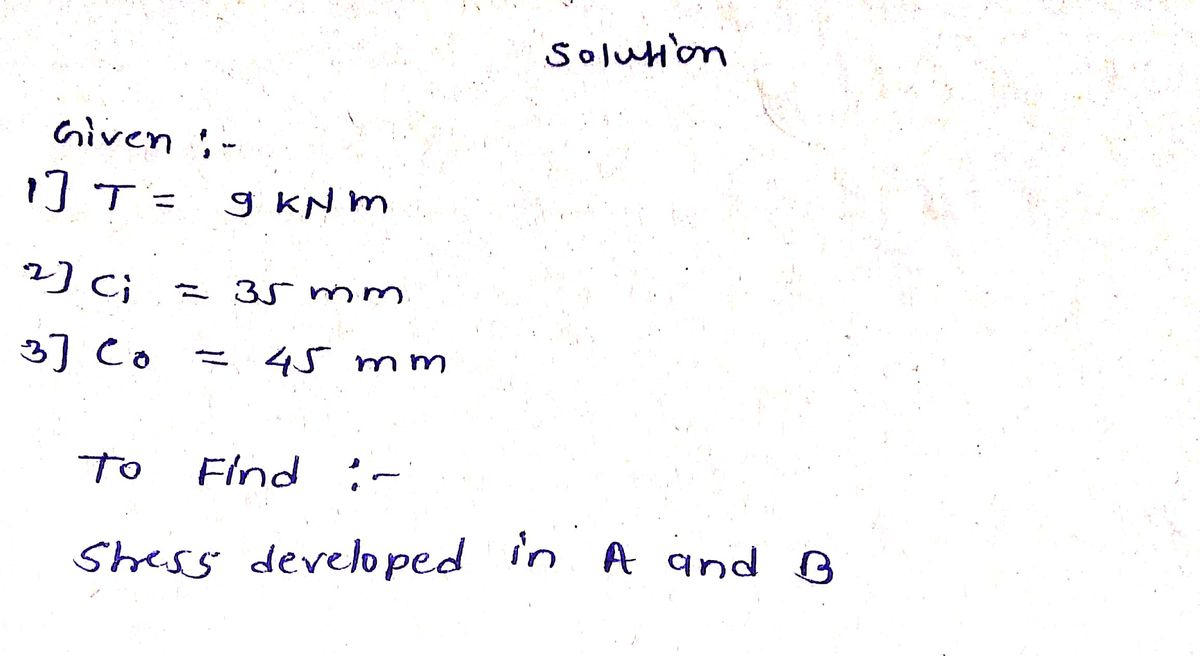 Solution
Given :-
1] T = 9 KN m
2] Ci = 35 mm
3] Co = 45 mm
To Find :-
Stress developed in A and B